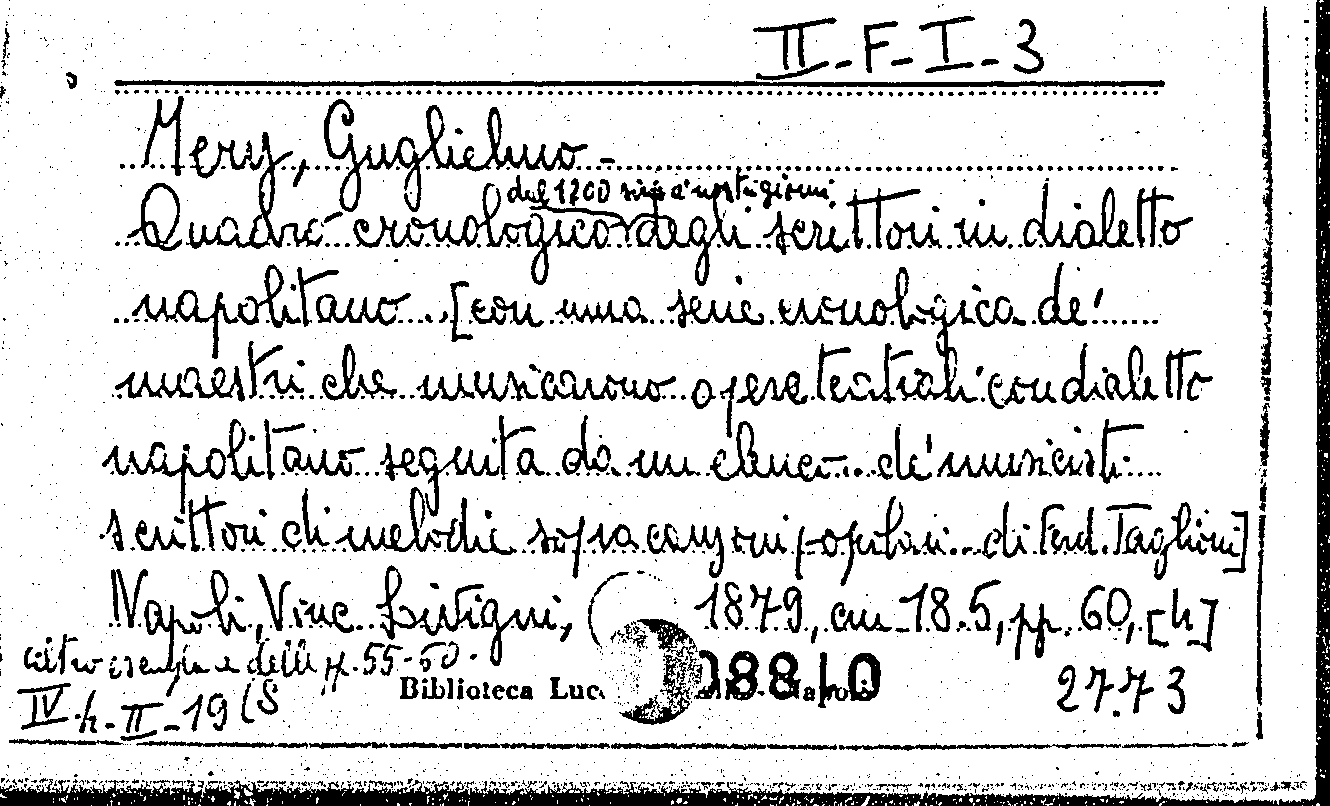 II-F-I-3
Mery, Guglielmo -
dal 1700 sino a' nostri giorni
Quadro cronologico degli scrittori in dialetto
napolitano .. [con una serie cronologica de'
maestri che musicarono opere teatrali con dialetto
napolitano seguita da un elenco de' musicisti
scrittori di melodie sopra canzoni popolari .. di Ferd. Taglioni]
Napoli, Vinc. Livigni, 1879, cm 18.5, pp. 60, [4]
altro esempl. delle pp. 55-60.
Biblioteca Luc Napoli
27.73
IV-h-II-19